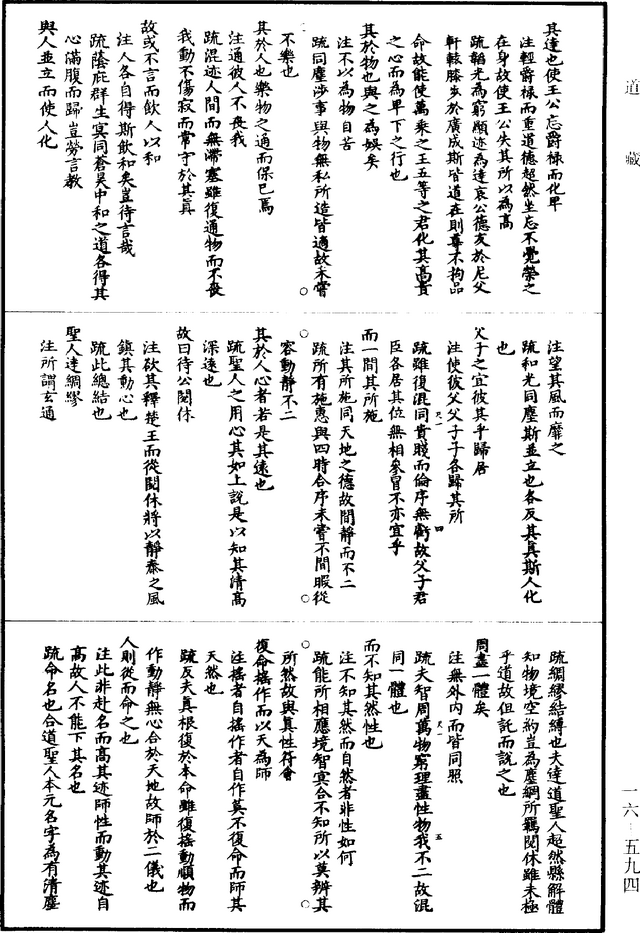 道藏
其達也使王公忘爵祿而化卑
注輕爵祿而重道德超然坐忘不覺榮之
在身故使王公失其所以為高
疏韜光為窮顯迹為達哀公德友於尼父
軒轅膝步於廣成斯皆道在則尊不拘品
命故能使萬乘之王五等之君化其高貴
之心而為卑下之行也
其於物也與之為娛矣
注不以為物自苦
疏同塵涉事與物無私所造皆適故未嘗
不樂也
其於人也樂物之通而保己焉
注通彼人不喪我
疏混迹人間而無滯塞雖復通物而不喪
我動不傷寂而常守於其真
故或不言而飲人以和
注人各自得斯飲和矣豈待言哉
疏蔭庇群生冥同蒼昊中和之道各得其
心滿腹而歸豈勞言教
與人並立而使人化
注望其風而靡之
疏和光同塵斯並立也各反其真斯人化
也
父子之宜彼其乎歸居
注使彼父父子子各歸其所
疏雖復混同貴賤而倫序無虧故父子君
臣各居其位無相參冒不亦宜乎
而一間其所施
注其所施同天地之德故間靜而不二
疏所有施惠與四時合序未嘗不間暇從
容動靜不二
其於人心者若是其遠也
疏聖人之用心其如上說是以知其清高
深遠也
故曰待公閱休
注欲其釋楚王而從閱休將以靜泰之風
鎮其動心也
疏此總結也
聖人達綢繆
注所謂玄通
疏綢繆結縛也夫達道聖人超然縣解體
知物境空約豈為塵網所羈閱休雖未極
乎道故但託而說之也
周盡一體矣
注無外內而皆同照
疏夫智周萬物窮理盡性物我不二故混
同一體也
而不知其然性也
注不知其然而自然者非性如何
疏能所相應境智冥合不知所以莫辯其
所然故與真性符會
復命搖作而以天為師
注搖者自搖作者自作莫不復命而師其
天然也
疏反夫真根復於本命雖復搖動順物而
作動靜無心合於天地故師於二儀也
人則從而命之也
注此非赴名而高其迹師性而動其迹自
高故人不能下其名也
疏命名也合道聖人本元名字為有清塵
一六·五九四